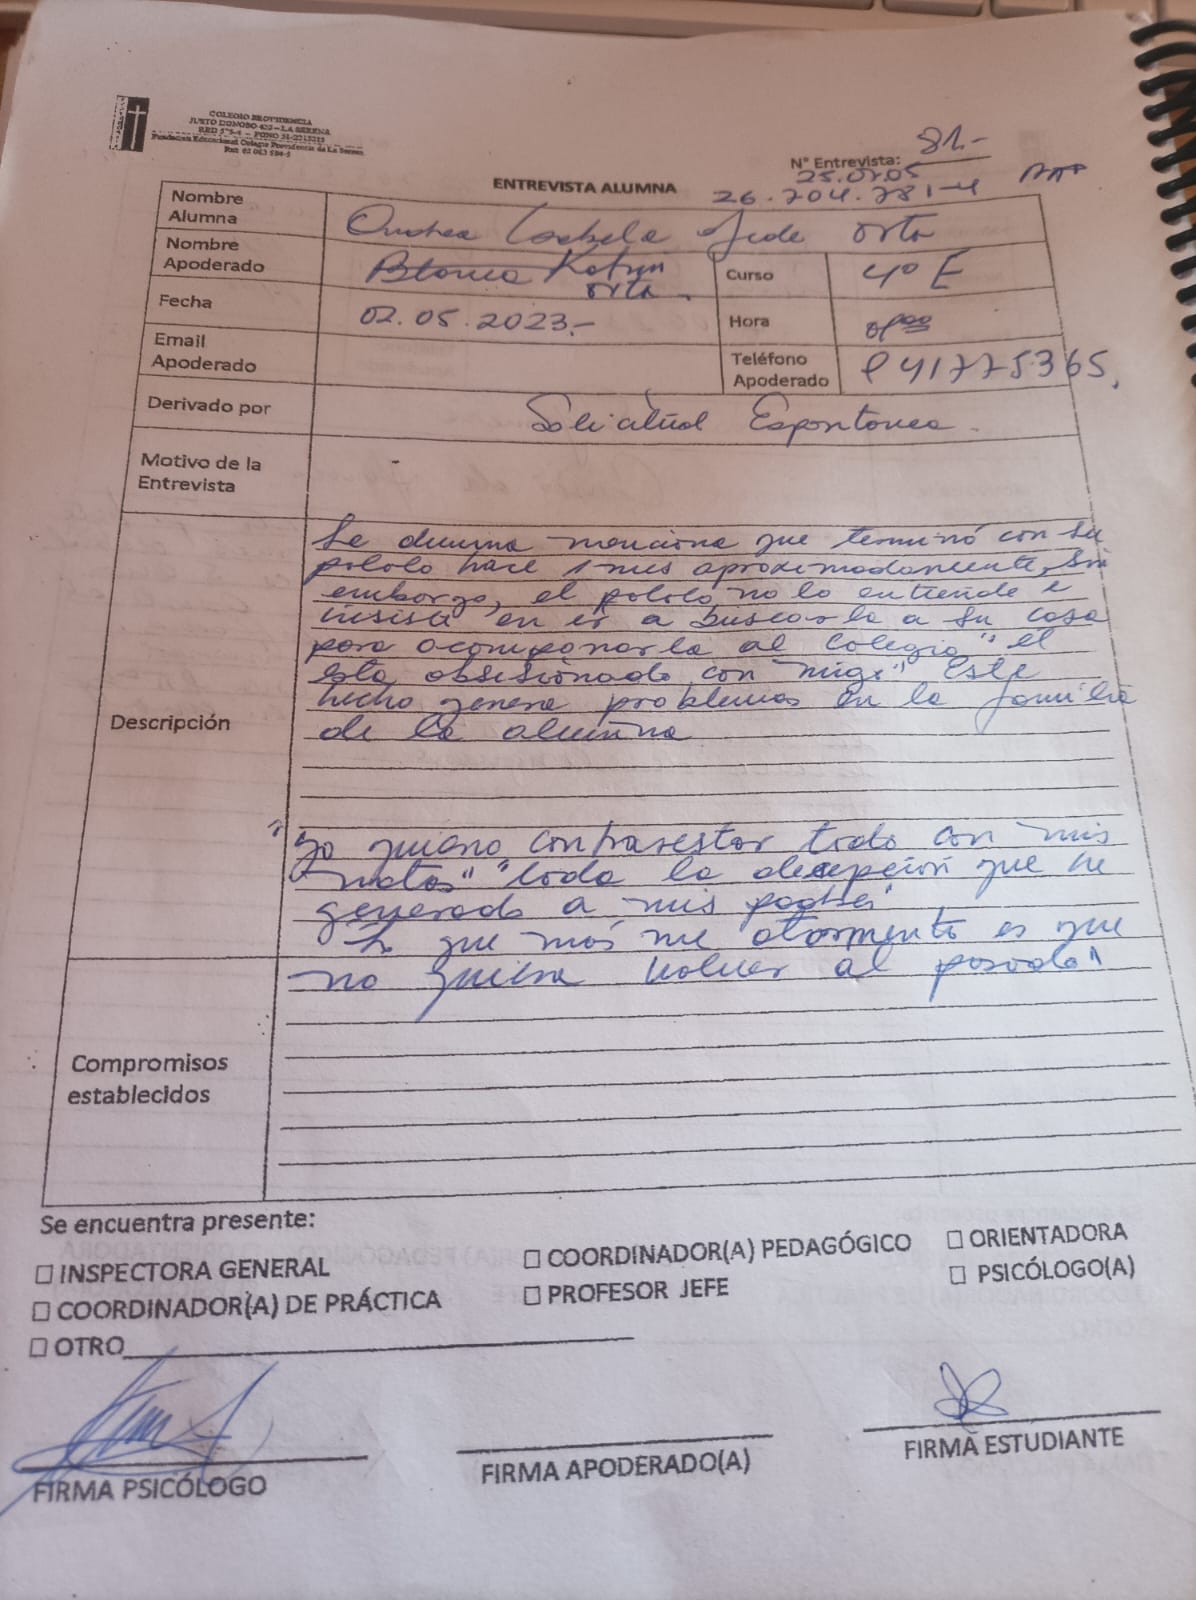 COLEGIO PROVIDENCIA
JUSTO DONOSO 420 - LA SERENA
RBD 575-4 - FONO 51-2215215
Fundación Educacional Colegio Providencia de La Serena
N° Entrevista: 81.-
25.07.05
ENTREVISTA ALUMNA
26.704.781-4
Nombre Alumna
Orta
Nombre Apoderado
Blanca Katrin Orta.
Curso
4° E
Fecha
02.05.2023.-
Hora
Email Apoderado
Teléfono Apoderado
941775365.
Derivado por
Solicitud Espontanea.
Motivo de la Entrevista
-
Descripción
La alumna menciona que terminó con su
pololo hace 1 mes aproximadamente, sin
embargo, el pololo no lo entiende e
insiste en ir a buscarla a su casa
para acompañarla al colegio "el
esta obsesionado con migo" Este
hecho genera problemas en la familia
de la alumna
"yo quiero contrarestar todo con mis
notas" "toda la decepción que he
generado a mis padres"
"Lo que más me atormenta es que
no quiera volver al pasado"
Compromisos establecidos
Se encuentra presente:
INSPECTORA GENERAL
COORDINADOR(A) PEDAGÓGICO
ORIENTADORA
COORDINADOR(A) DE PRÁCTICA
PROFESOR JEFE
PSICÓLOGO(A)
OTRO
FIRMA PSICÓLOGO
FIRMA APODERADO(A)
FIRMA ESTUDIANTE